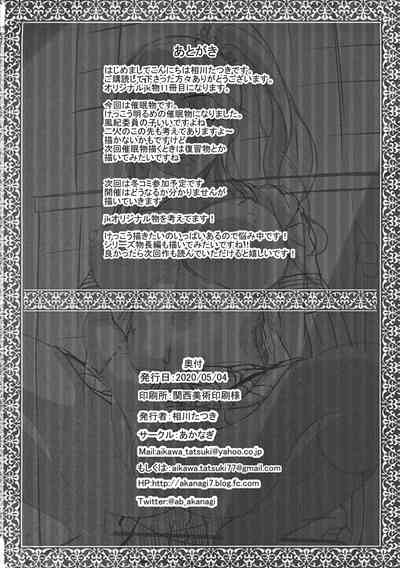 あとがき
はじめましてこんにちは相川たつきです。
ご購読して下さった方々ありがとうございます。
オリジナルjk物11冊目になります。
今回は催眠物です。
けっこう明るめの催眠物になりました。
風紀委員の子いいですよね
二人のこの先も考えてありますよ～
描かないかもですけど
次回催眠物描くときは復習物とか
描いてみたいですね
次回は冬コミ参加予定です
開催はどうなるか分かりませんが
描いていきます
jkオリジナル物を考えてます！
けっこう描きたいのいっぱいあるので悩み中です！
シリーズ物長編も描いてみたいですね!!
良かったら次回作も読んでいただけると嬉しいです！
奥付
発行日:2020/05/04
印刷所:関西美術印刷様
発行者:相川たつき
サークル:あかなぎ
Mail:aikawa_tatsuki@yahoo.co.jp
もしくは:aikawa.tatsuki77@gmail.com
HP:http://akanagi7.blog.fc.com
Twitter:@ab_akanagi